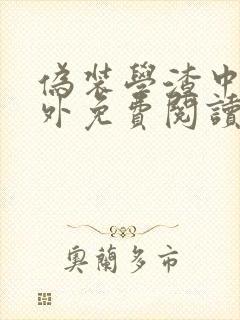 偽裝學渣中
外免費閱讀
奧蘭多市